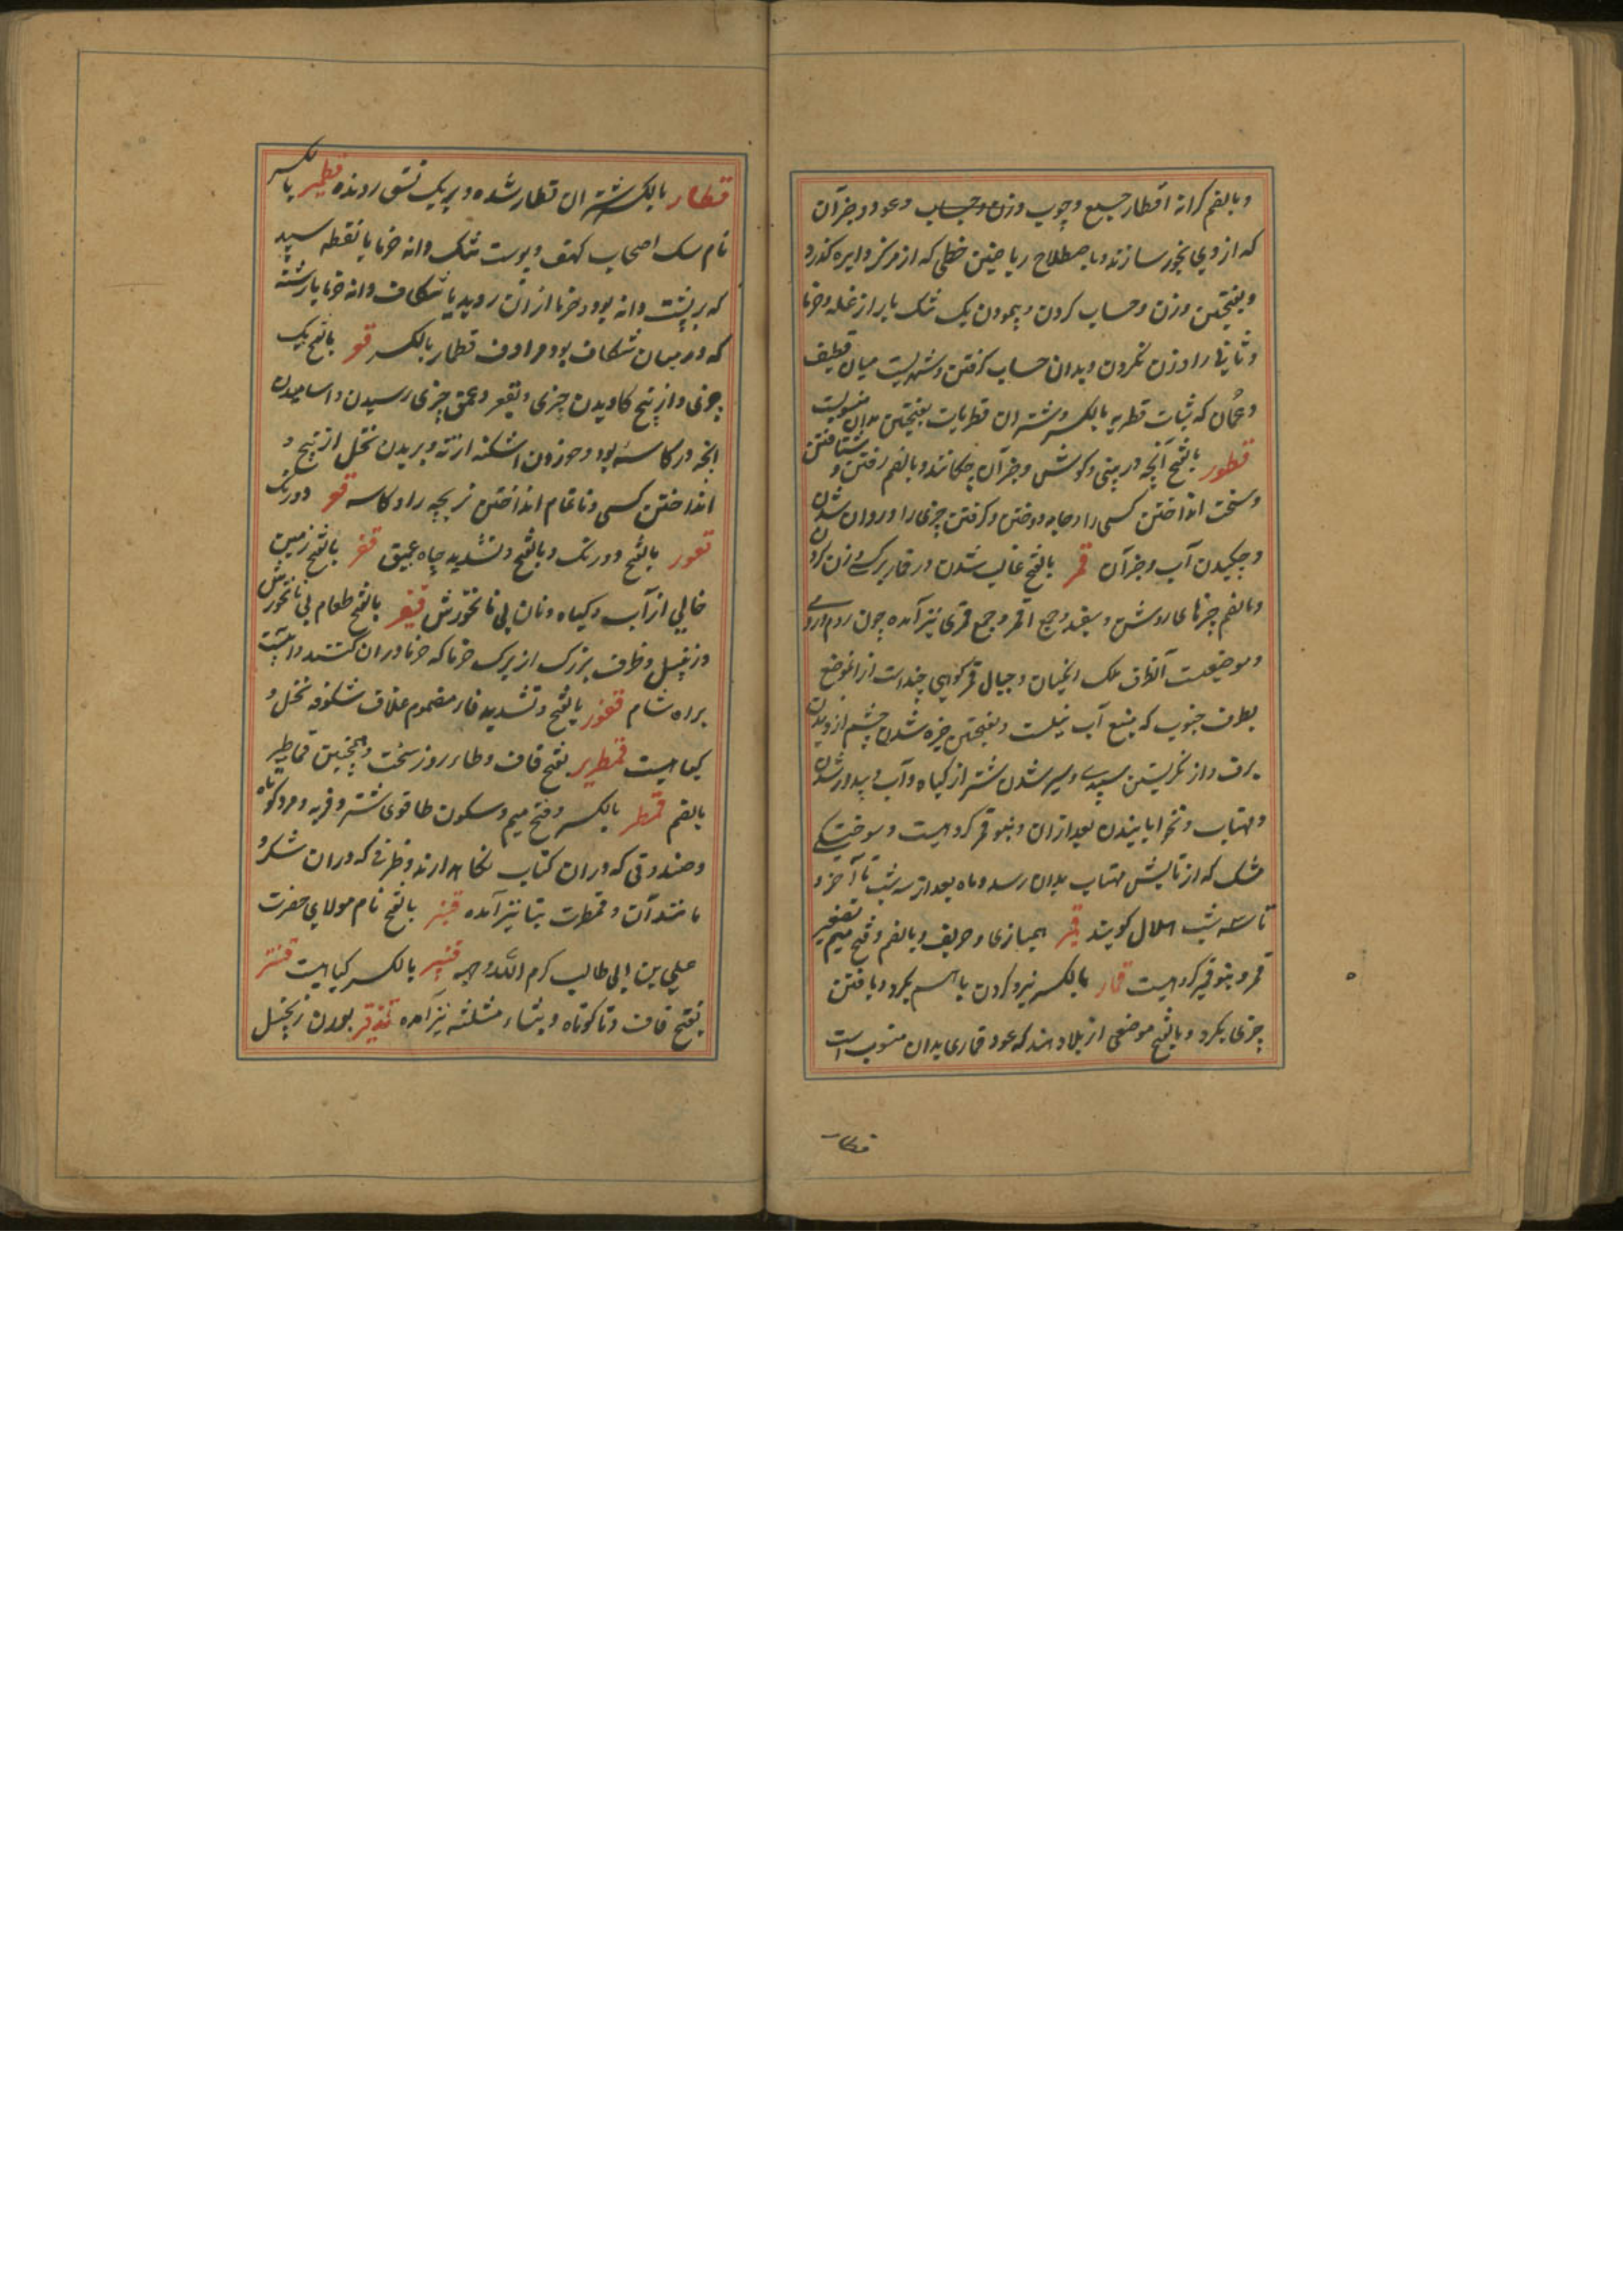 وبالضم کرانه اقطار جمع وچوب وزن وحساب وعود وجز آن
که از وی بخور سازند وباصطلاح ریاضیین خطی که از مرکز دایره کذرد
وبفتحتین وزن وحساب کردن وپیمودن یک تنک بار از غله وخرما
وثانی را وزن نکردن وبدان حساب کرفتن وشهریست میان قطیف
وعمان که ثیاب قطریه بالکسر وشتران قطریات بفتحتین بدان منسوبست
قطور بالفتح آنچه در بینی وکوش وجز آن چکانند وبالضم رفتن و شتافتن
وسخت انداختن کسی را وجامه دوختن وکرفتن چیزی را وروان شدن
وچکیدن آب وجز آن قمر بالفتح غالب شدن در قمار بر کسی وزن کردن
وبالضم چیزهای روشن وسفید جمع اقمر وجمع قمری نیز آمده چون روم ورومی
وموضعیست آنطرف ملک وجبال قمر کوهی چند است از انموضع
بطرف جنوب که منبع آب نیلست وبفتحتین خیره شدن چشم از دیدن
برف واز نکریستن سپیدی وسیر شدن شتر از کیاه وآب وبیدار شدن
ومهتاب وقمر ماه بعد از ان وبنو قمر کروهیست وسوختکی
مشک که از تابش مهتاب بدان رسد وماه بعد از سه شب تا آخر و
تا سه شب هلال کویند قمیر همبازی وحریف وبالضم وفتح میم تصغیر
قمر وبنو قمیر کروهیست قمار بالکسر نبرد کردن با هم بکرو وباختن
چیزی بکرو وبالفتح موضعی از بلاد هند که عود قماری بدان منسوب است
قطار
قطار بالکسر شتران قطار شده وبر یک نسق رونده قطمیر بالکسر
نام سک اصحاب کهف وپوست تنک دانه خرما یا نقطه سپید
که بر پشت دانه بود وخرما از ان روید یا شکاف دانه خرما یا رشته
که در میان شکاف بود مرادف قطمار بالکسر قعر بالفتح تک
چیزی واز بیخ کاویدن چیزی وبقعر وعمق چیزی رسیدن واشامیدن
انچه در کاسه بود وخوردن اشکنه از ته وبریدن نخل از بیخ و
انداختن کسی وناتمام انداختن بز بچه را وکاسه قعر دورتک
قعور بالفتح دورتک وبالفتح وتشدید چاه عمیق قفر بالفتح زمین
خالی از آب وکیاه ونان بی نانخورش قفیر بالفتح طعام بی نانخورش
وزنبیل وظرف بزرک از برک خرما که خرما در ان کنند وآبیست
براه شام قفور بالفتح وتشدید فاء مضموم غلاف شکوفه نخل و
کیاهیست قمطریر بفتح قاف وطاء روز سخت وهمچنین قماطر
بالضم قمطر بالکسر وفتح میم وسکون طا قوی شتر وفربه ومرد کوتاه
وصندوقی که دران کتاب نکاه دارند وظرفی که دران شکر و
مانند آن وقمطرت بتا نیز آمده قنبر بالفتح نام مولای حضرت
علی بن ابی طالب کرم الله وجهه قنبیر بالکسر کیاهیست قنتر
بفتح قاف وتا کوتاه وبثاء مثلثه نیز آمده بوزن زنجبیل